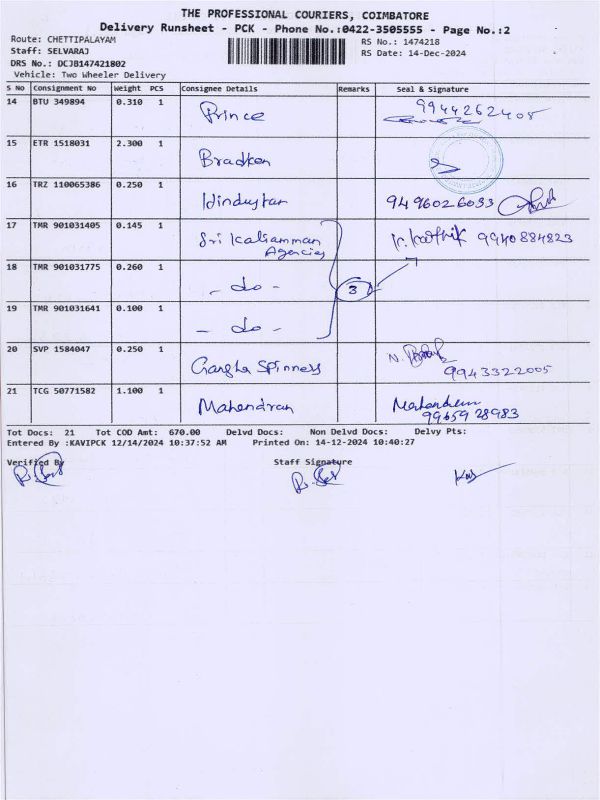 THE PROFESSIONAL COURIERS, COIMBATORE
Delivery Runsheet - PCK - Phone No.:0422-3505555 - Page No.:2
Route: CHETTIPALAYAM
RS No.: 1474218
Staff: SELVARAJ
RS Date: 14-Dec-2024
DRS No.: DCJB147421802
Vehicle: Two Wheeler Delivery
S No Consignment No Weight PCS Consignee Details Remarks Seal & Signature
14 BTU 349894 0.310 1 Prince 9944262405
15 ETR 1518031 2.300 1 Bradken
16 TRZ 110065386 0.250 1 Hindustan 9496026033
17 TMR 901031405 0.145 1 Sri Kaliamman K. Karthik 9940884823
Agencies
18 TMR 901031775 0.260 1 - do - 3
19 TMR 901031641 0.100 1 - do -
20 SVP 1584047 0.250 1 Gangha Spinners N. 9943322005
21 TCG 50771582 1.100 1 Mahendran Mahendran
99659 28983
Tot Docs: 21 Tot COD Amt: 670.00 Delvd Docs: Non Delvd Docs: Delvy Pts:
Entered By :KAVIPCK 12/14/2024 10:37:52 AM Printed On: 14-12-2024 10:40:27
Verified By Staff Signature